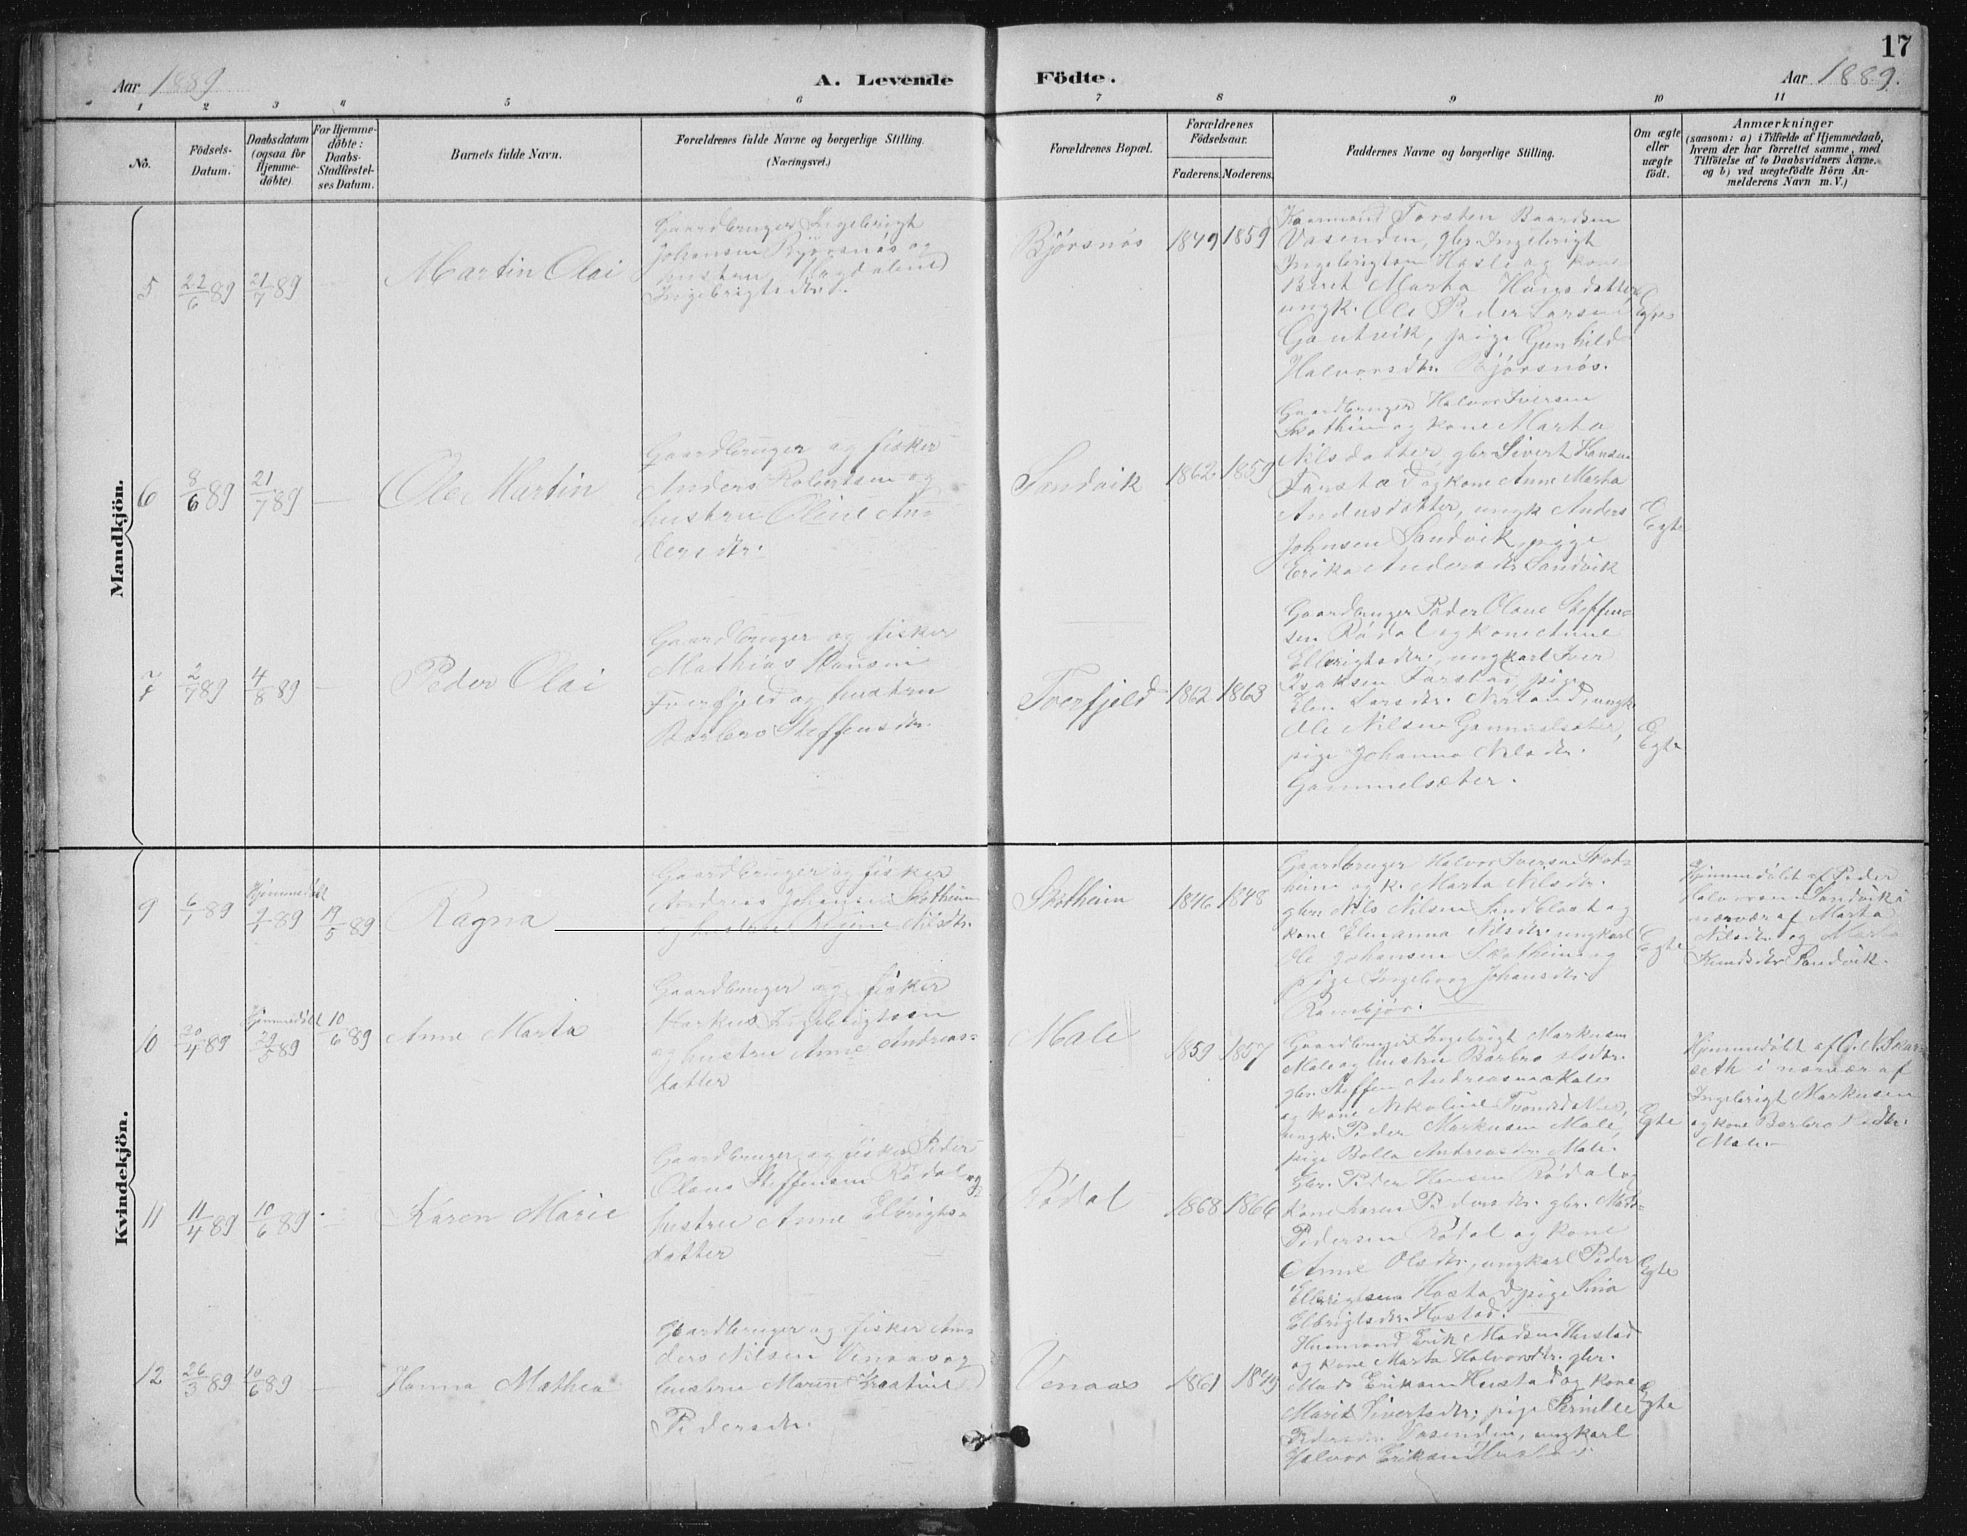 17
Aar 1889
A. Levende
Födte.
Aar 1889.
1 2 3 4 5 6 7 8 9 10 11
No.
Födsels-
Datum.
Daabsdatum
(ogsaa for
Hjemme-
döbte)
For Hjemme-
döbte:
Daabs-
Stadfæstel-
ses Datum.
Barnets fulde Navn.
Forældrenes fulde Navne og borgerlige Stilling.
(Næringsvei.)
Forældrenes Bopæl.
Forældrenes
Födselsaar.
Faderens. Moderens.
Faddernes Navne og borgerlige Stilling.
Om ægte
eller
uægte
födt.
Anmærkninger
(saasom: a) i Tilfælde af Hjemmedaab,
hvem der har forrettet samme, med
Tilföielse af to Daabsvidners Navne.
og b) ved uægtefödte Börn An-
melderens Navn m.V.)
Mandkjön.
5
22/6 89
21/7 89
Martin Olai
Gaardbruger Ingebrigt
Johansen Bjørsnøs og
hustru Magdalene
Ingebrigtsdtr.
Bjørsnøs
1849 1859
Torsten Baardsen
Vasenden, gbr. Ingebrigt
Ingebrigtsen og kone
Beret Marta Hansdatter
ungk. Ole Peder Larsen
pige Gunhild
Halvorsdtr. Bjørsnøs.
Egte
6
8/6 89
21/7 89
Ole Martin
Gaardbruger og fisker
Anders Robertsen og
hustru Oline An-
dersdtr.
Sandvik
1862 1859
Gaardbruger Halvor Iversen
Skotheim og kone Marta
Nilsdatter, gbr Sivert Hansen
Farstad og kone Anne Marta
Andersdatter, ungk Anders
Johnsen Sandvik, pige
Erika Andersdtr Sandvik
Egte
7
2/7 89
4/8 89
Peder Olai
Gaardbruger og fisker
Mathias Hansen
Tverfjeld og hustru
Barbro Steffensdtr.
Tverfjeld
1862 1863
Gaardbruger Peder Olaus Steffen-
sen Rødal og kone Anne
Elbrigtsdtr., ungkarl Iver
Isaksen Farstad, pige
Elen Larsdtr. Nerland, ungk.
Ole Nilsen Gammelsæter,
pige Johanna Nilsdtr.
Gammelsæter.
Egte
Kvindekjön.
9
6/1 89
Hjemmedøbt
7/1 89
19/5 89
Ragna
Gaardbruger og fisker
Andreas Johansen Skotheim
og hustru Regine Nilsdtr.
Skotheim
1846 1848
Gaardbruger Halvor Iversen Skot-
heim og k. Marta Nilsdtr.
gbr. Nils Nilsen og
kone Elenanna Nilsdtr. ungkarl
Ole Johansen Skotheim og
pige Ingeborg Johansdtr.
Egte
Hjemmedøbt af Peder
Halvorsen Sandvik i
nærvær af Marta
Nilsdtr. og Marta
Knudsdtr Sandvik.
10
20/4 89
Hjemmedøbt
10/6 89
Anne Marta
Gaardbruger og fisker
Markus Ingebrigtsen
og hustru Anne Andreas-
datter
Male
1859 1857
Gaardbruger Ingebrigt Markusen
Male og hustru Barbro
gbr. Steffen Andreasen Male
og kone Nikoline
ungk. Peder Markusen Male,
pige Andreasdtr. Male.
Egte
Hjemmedøbt af
i nærvær af
Ingebrigt Markusen
og kone Barbro
Male
11
11/4 89
10/6 89
Karen Marie
Gaardbruger og fisker Peder
Olaus Steffensen Rødal og
hustru Anne Elbrigts-
datter
Rødal
1868 1866
Gbr. Peder Hansen Rødal og
kone Karen Pedersdtr. gbr.
Pedersen Rødal og kone
Anne Olsdtr., ungkarl Peder
Elbrigtsen Hostad, pige
Elbrigtsdtr. Hostad.
Egte
12
26/3 89
10/6 89
Hanna Mathea
Gaardbruger og fisker An-
ders Nilsen Venaas og
hustru Maren
Pedersdtr.
Venaas
1861 1849
Husmand Erik Madsen Hustad
og kone Marta Halvorsdtr. gbr.
Mads Eriksen Hustad og kone
Marit Sivertsdtr, pige Pernille
Pedersdtr Vasenden, ungkarl
Halvor Eriksen Hustad.
Egte